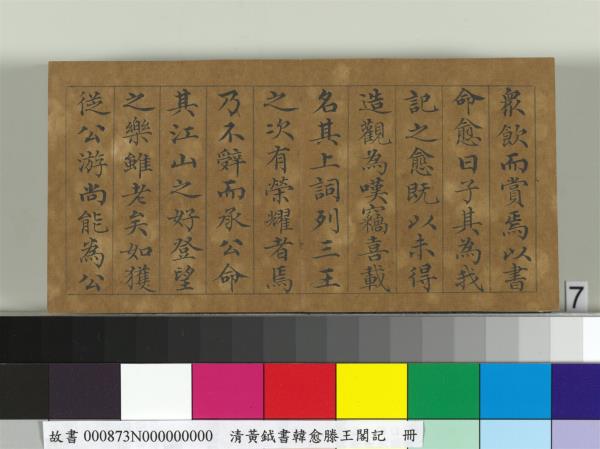 衆飲而賞焉以書
命愈曰子其為我
記之愈既以未得
造觀為嘆竊喜載
名其上詞列三王
之次有榮耀者焉
乃不辭而承公命
其江山之好登望
之樂雖老矣如獲
從公游尚能為公
7
故書 000873N000000000 清黃鉞書韓愈滕王閣記 冊